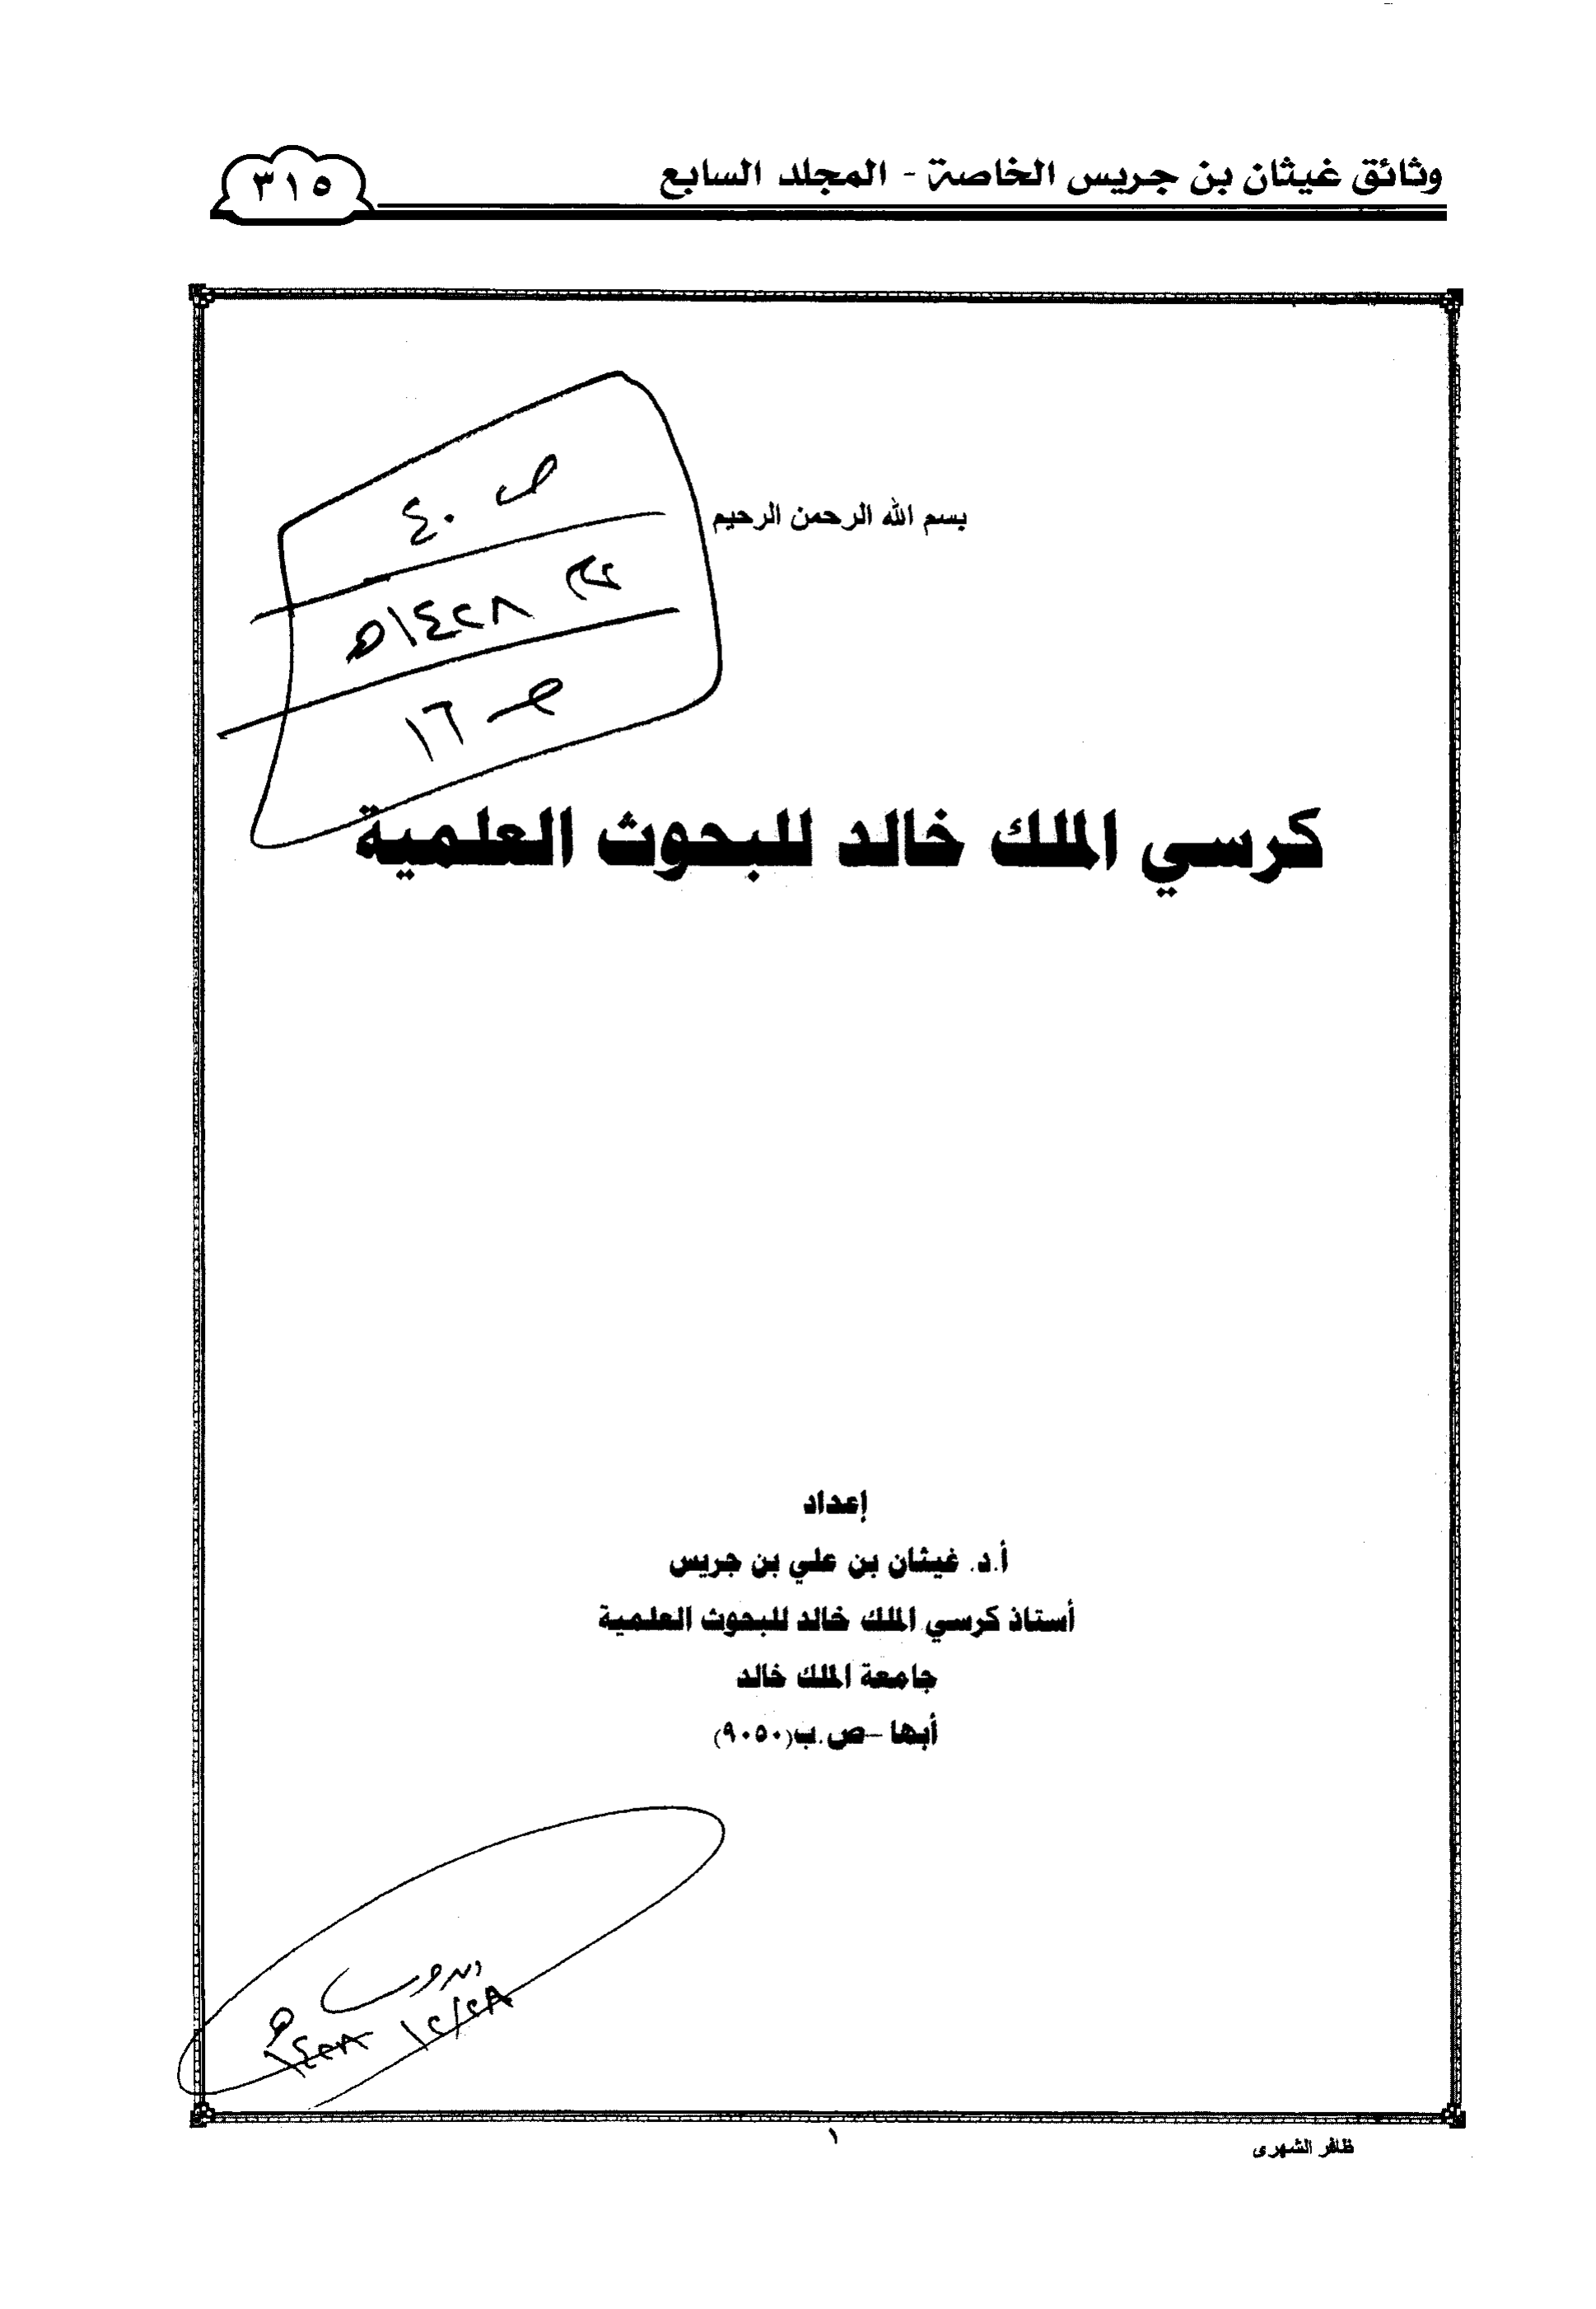 وثائق غيثان بن جريس الخاصة - المجلد السابع
٣١٥
ص ٤٠
١٤٢٨هـ
ص ١٦
بسم الله الرحمن الرحيم
كرسي الملك خالد للبحوث العلمية
إعداد
أ.د. غيثان بن علي بن جريس
أستاذ كرسي الملك خالد للبحوث العلمية
جامعة الملك خالد
أبها – ص.ب(٩٠٥٠)
١٢/٢٨ ١٤٢٨هـ
١
ظافر الشهرى